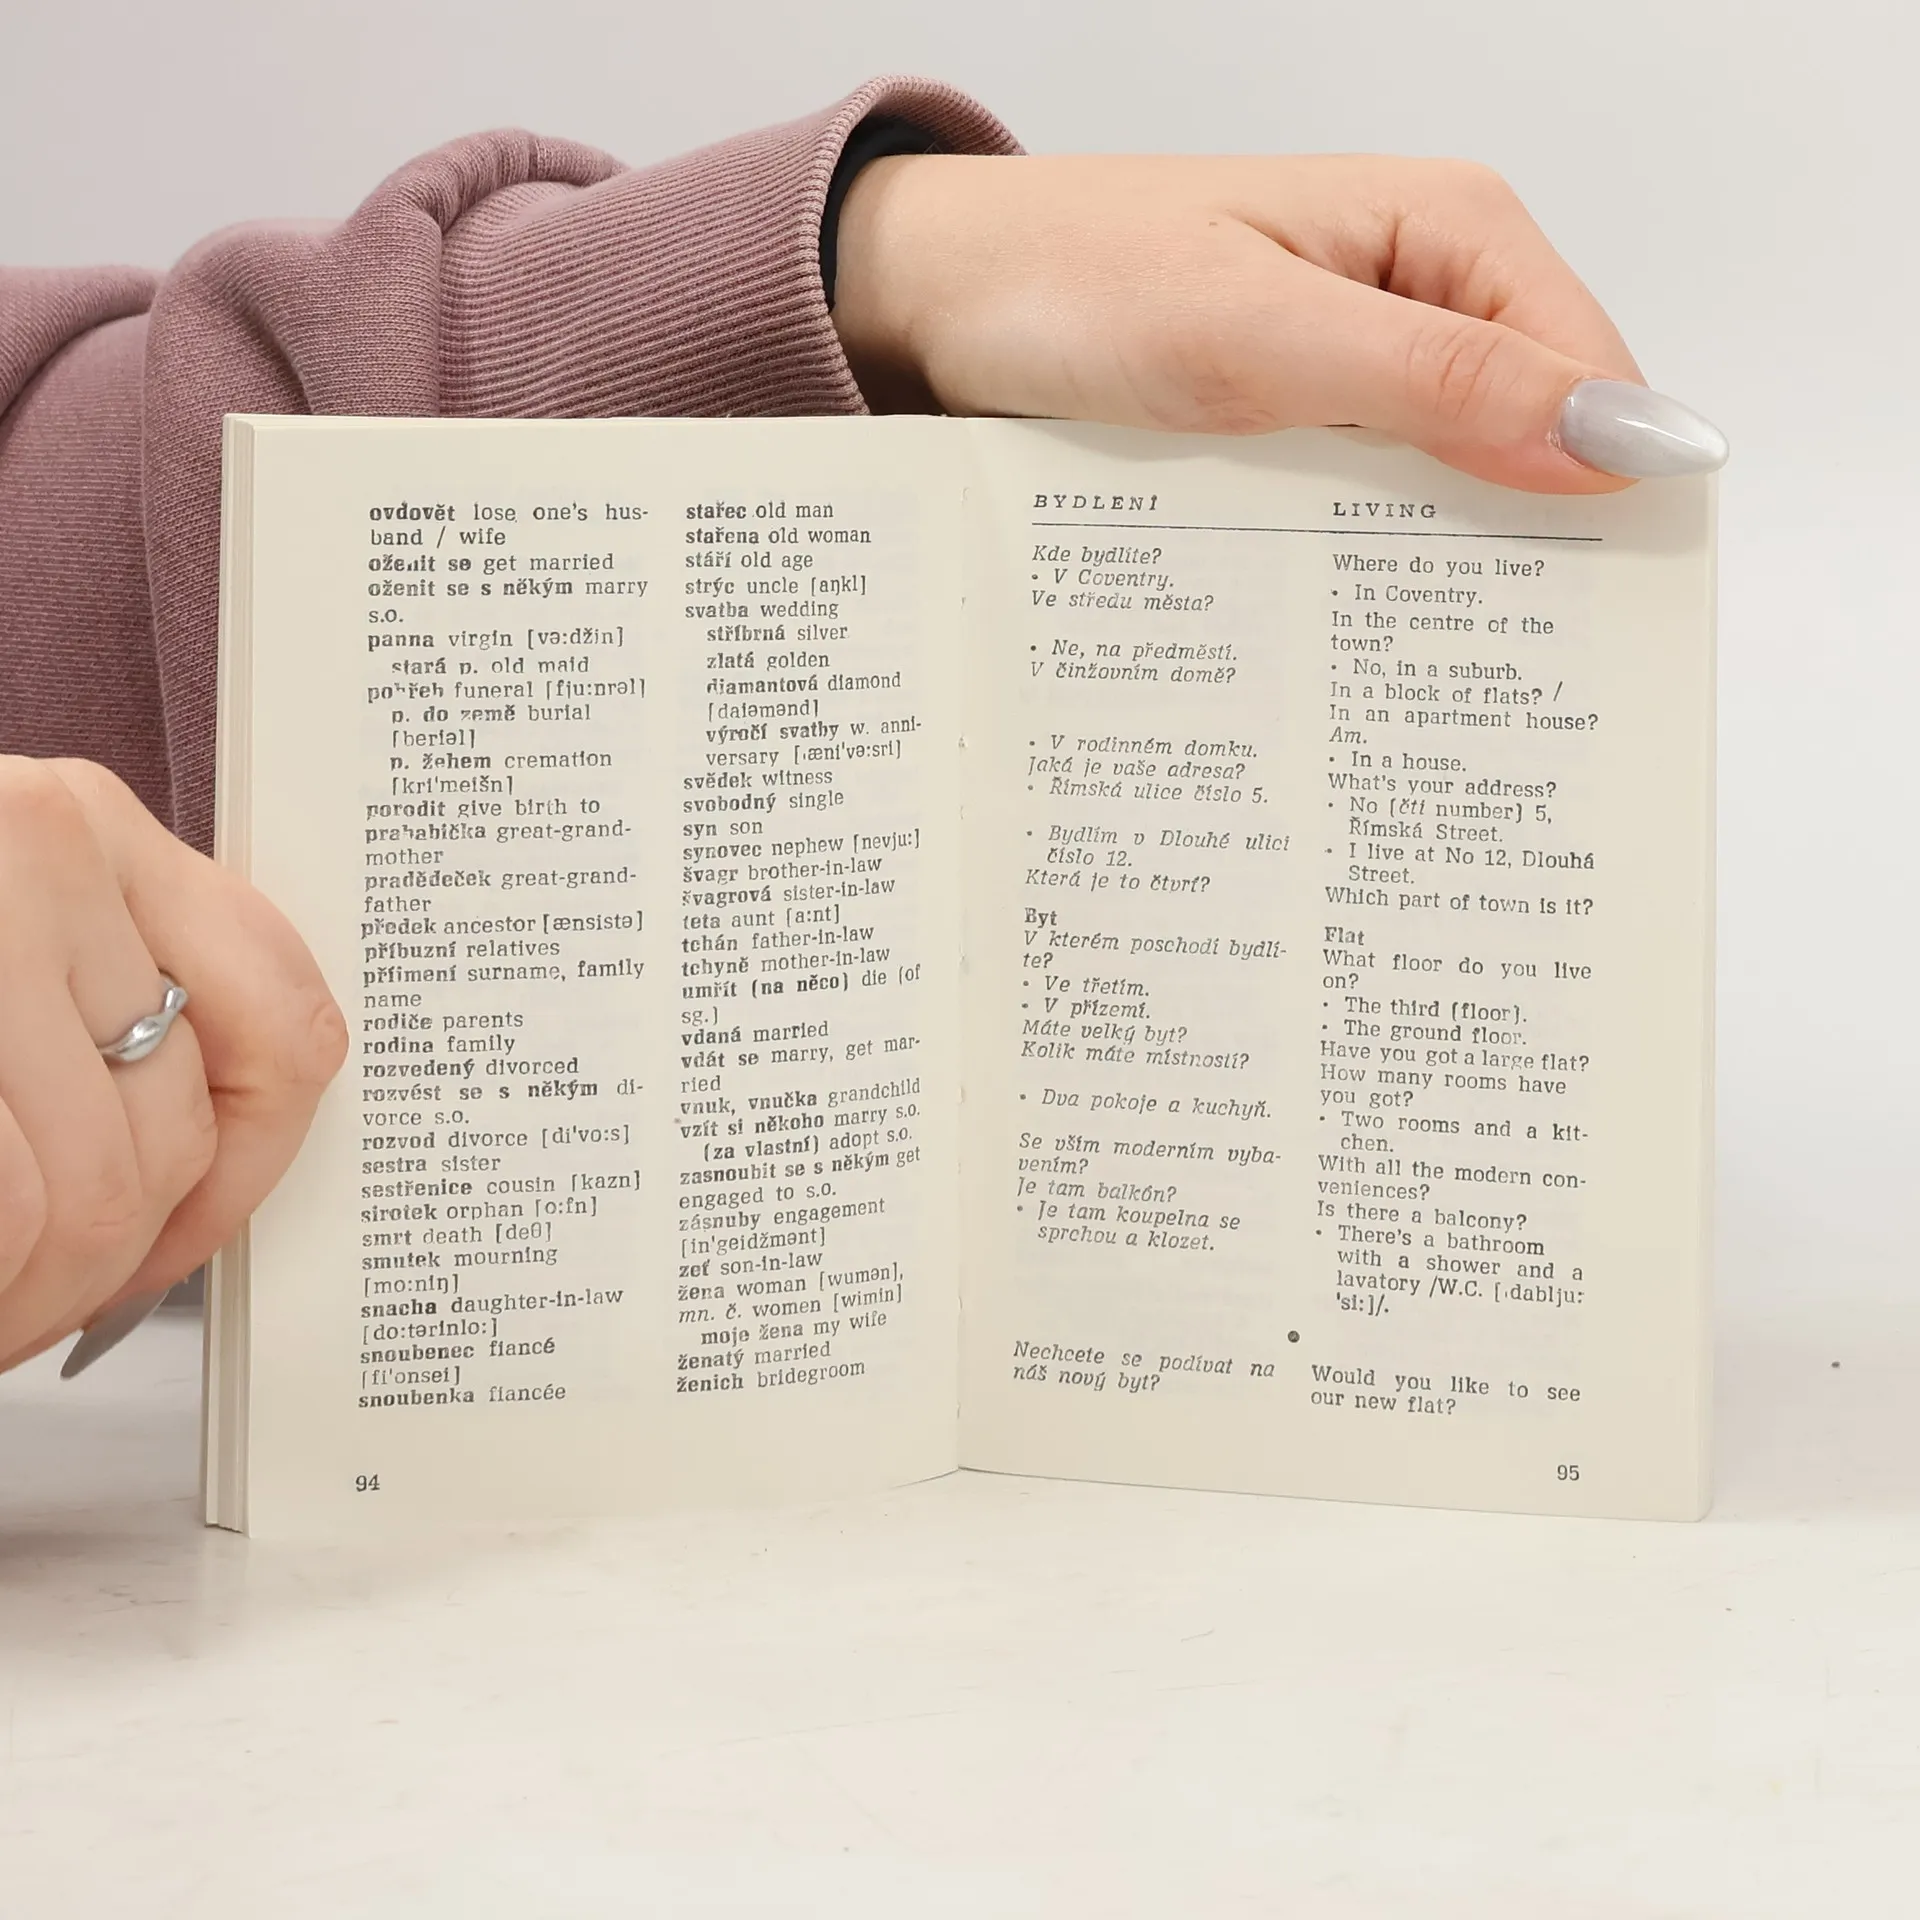 ovdovět lose one's hus-
band / wife
oženit se get married
oženit se s někým marry
s.o.
panna virgin [və:džin]
stará p. old maid
pohřeb funeral [fju:nrəl]
p. do země burial
[beriəl]
p. žehem cremation
[kri'meišn]
porodit give birth to
prababička great-grand-
mother
pradědeček great-grand-
father
předek ancestor [ænsistə]
příbuzní relatives
příjmení surname, family
name
rodiče parents
rodina family
rozvedený divorced
rozvést se s někým di-
vorce s.o.
rozvod divorce [di'vo:s]
sestra sister
sestřenice cousin [kazn]
sirotek orphan [o:fn]
smrt death [deθ]
smutek mourning
[mo:niŋ]
snacha daughter-in-law
[do:tərinlo:]
snoubenec fiancé
[fi'onsei]
snoubenka fiancée
94
stařec old man
stařena old woman
stáří old age
strýc uncle [aŋkl]
svatba wedding
stříbrná silver
zlatá golden
diamantová diamond
[daiəmənd]
výročí svatby w. anni-
versary [ˌæni'və:sri]
svědek witness
svobodný single
syn son
synovec nephew [nevju:]
švagr brother-in-law
švagrová sister-in-law
teta aunt [a:nt]
tchán father-in-law
tchyně mother-in-law
umřít (na něco) die (of
sg.)
vdaná married
vdát se marry, get mar-
ried
vnuk, vnučka grandchild
vzít si někoho marry s.o.
(za vlastní) adopt s.o.
zasnoubit se s někým get
engaged to s.o.
zásnuby engagement
[in'geidžmənt]
zeť son-in-law
žena woman [wumən],
mn. č. women [wimin]
moje žena my wife
ženatý married
ženich bridegroom
BYDLENÍ
Kde bydlíte?
• V Coventry.
Ve středu města?
• Ne, na předměstí.
V činžovním domě?
• V rodinném domku.
Jaká je vaše adresa?
• Římská ulice číslo 5.
• Bydlím v Dlouhé ulici
číslo 12.
Která je to čtvrť?
Byt
V kterém poschodí bydlí-
te?
• Ve třetím.
• V přízemí.
Máte velký byt?
Kolik máte místností?
• Dva pokoje a kuchyň.
Se vším moderním vyba-
vením?
Je tam balkón?
• Je tam koupelna se
sprchou a klozet.
Nechcete se podívat na
náš nový byt?
LIVING
Where do you live?
• In Coventry.
In the centre of the
town?
• No, in a suburb.
In a block of flats? /
In an apartment house?
Am.
• In a house.
What's your address?
• No (čti number) 5,
Římská Street.
• I live at No 12, Dlouhá
Street.
Which part of town is it?
Flat
What floor do you live
on?
• The third (floor).
• The ground floor.
Have you got a large flat?
How many rooms have
you got?
• Two rooms and a kit-
chen.
With all the modern con-
veniences?
Is there a balcony?
• There's a bathroom
with a shower and a
lavatory /W.C. [ˌdablju:
'si:]/.
Would you like to see
our new flat?
95